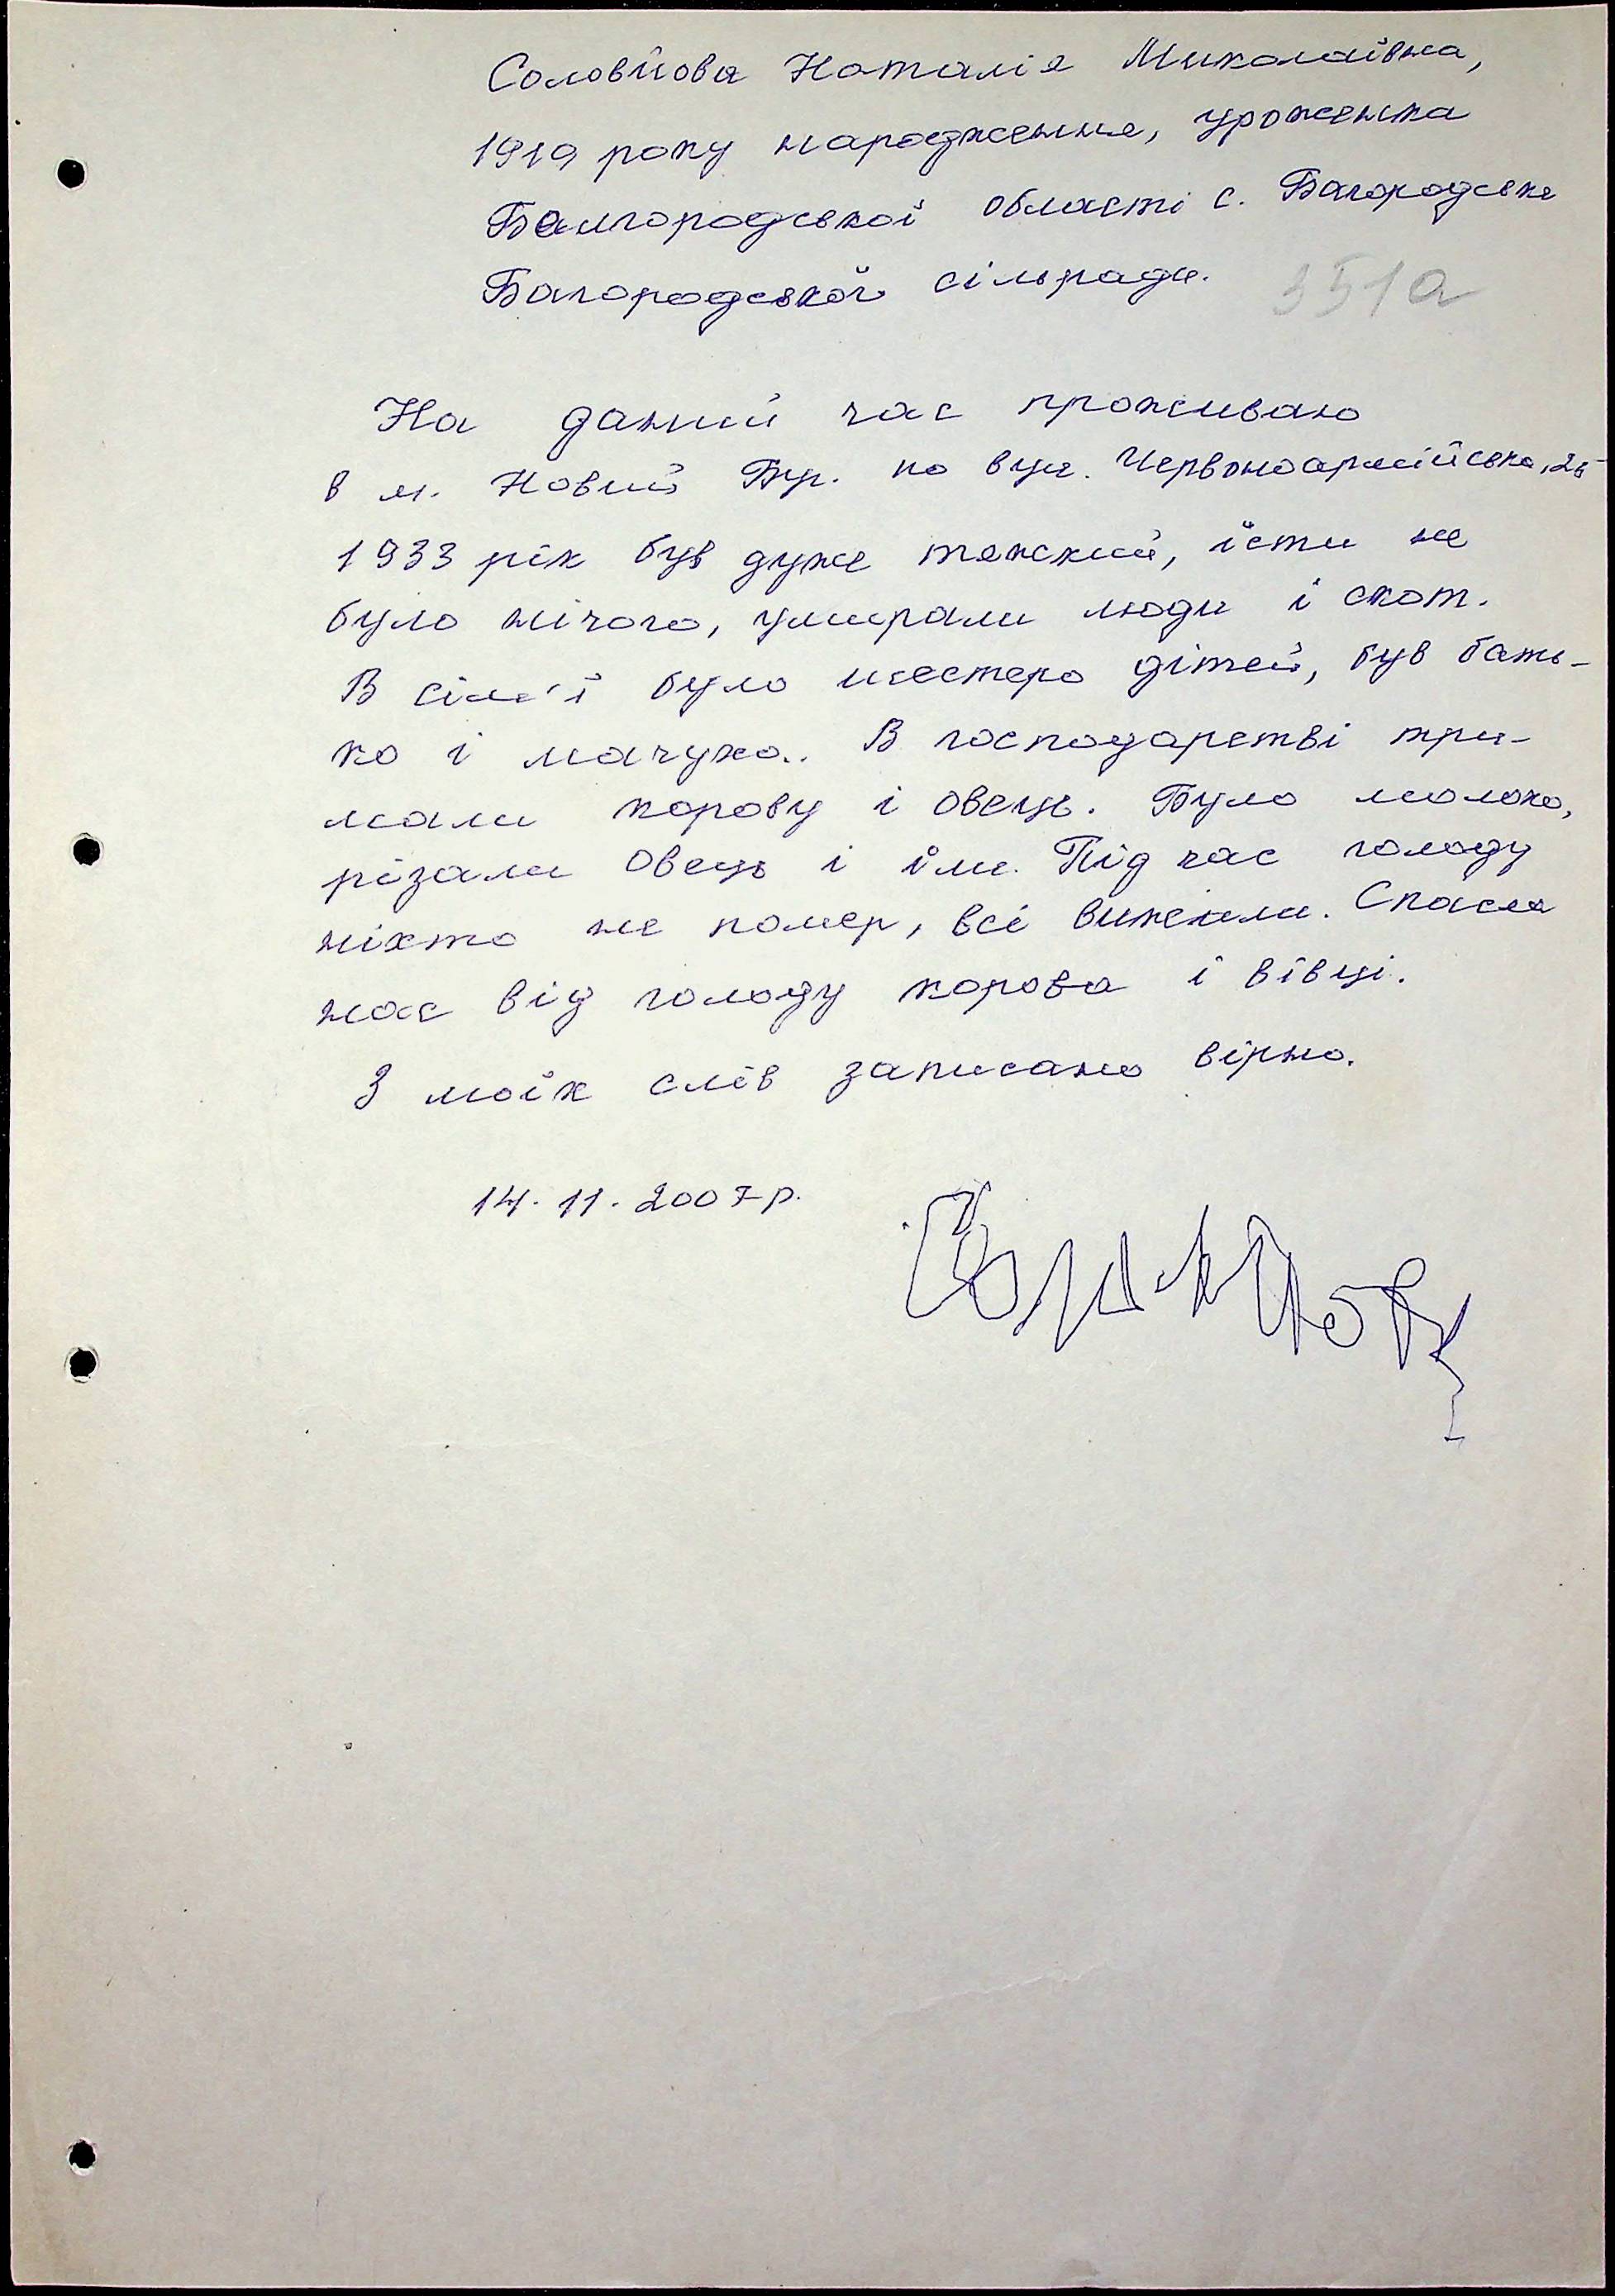 Соловйова Наталія Миколаївна,
1919 року народження, уроженка
Балгородської області с. Багородське
Багородської сільради.
351а
На данний час проживаю
в м. Новий Буг. по вул. Червоноармійська, 25
1933 рік був дуже тяжкий, їсти не
було нічого, умирали люди і скот.
В сім'ї було шестеро дітей, був бать-
ко і мачуха.. В господарстві три-
мали корову і овець. Було молоко,
різали овець і їли. Під час голоду
ніхто не помер, всі вижили. Спасла
нас від голоду корова і вівці.
З моїх слів записано вірно.
14. 11. 2007 р.